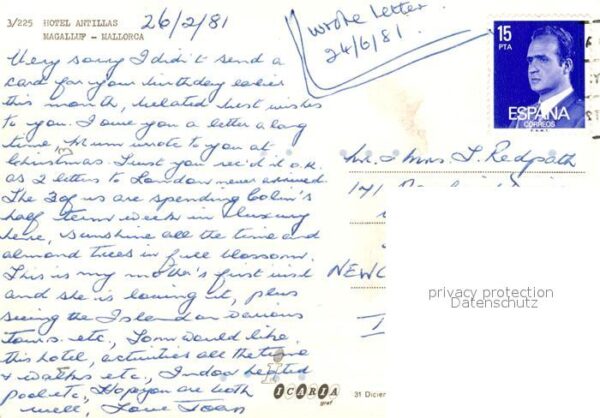 3/225 HOTEL ANTILLAS
MAGALLUF - MALLORCA
26/2/81
wrote letter
24/6/81.
15
PTA
ESPAÑA
CORREOS
Very sorry I didn't send a
card for your birthday earlier
this month, belated best wishes
to you. I owe you a letter a long
time, Mum wrote to you at
Christmas. Trust you rec'd it o.k.
as 2 letters to London never arrived.
The 3 of us are spending Colin's
half term week in luxury
here, sunshine all the time and
almond trees in full blossom.
This is my mother's first visit
and she is loving it, plus
seeing the Island on various
tours. etc., Tom would like
this hotel, activities all the time
+ walks etc., Indoor heated
pool etc., Hope you are both
well, Love Joan
Mr. & Mrs T. Redpath
141
NEWC
privacy protection
Datenschutz
ICARIA
graf
31 Dicier